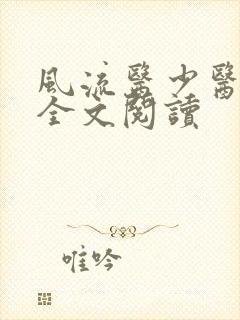 風流醫少醫
全文閱讀
唯吟